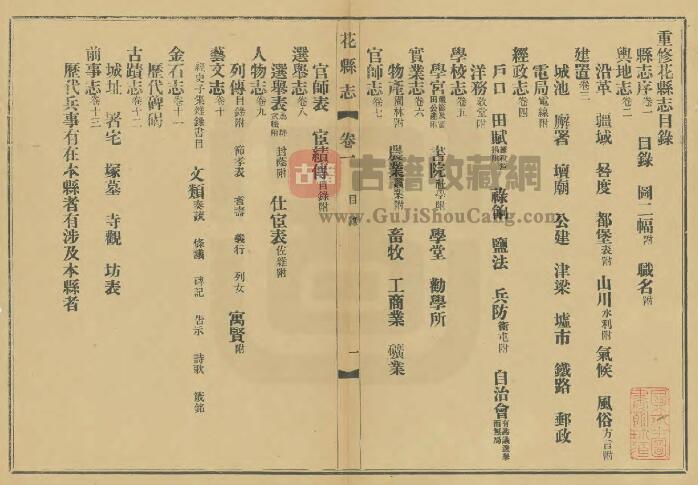 重修花縣志目錄
縣志序卷一 目錄 圖二幅附 職名附
輿地志卷二
沿革 疆域 晷度 都堡表附 山川水利附 氣候 風俗方言附
建置卷三
城池 廨署 壇廟 公建 津梁 墟市 鐵路 郵政
電局電線附
經政志卷四
戶口 田賦 祿餉 鹽法 兵防衛屯附 自治會
洋務教堂附
學校志卷五
學宮 書院社學附 學堂 勸學所
實業志卷六
物產園林附 農業蠶業附 畜牧 工商業 礦業
官師志卷七
花縣志 卷一 目錄 一
官師表 宦績傳目錄附
選舉志卷八
選舉表 封蔭附 仕宦表佐雜附
人物志卷九
列傳目錄附 節孝表 耆壽 義行 列女 寓賢附
藝文志卷十
經史子集雜錄書目 文類奏議 條議 碑記 告示 詩歌 箴銘
金石志卷十一
歷代碑碣
古蹟志卷十二
城址 署宅 塚墓 寺觀 坊表
前事志卷十三
歷代兵事有在本縣者有涉及本縣者
古籍
古籍收藏網
www.GuJiShouCang.com